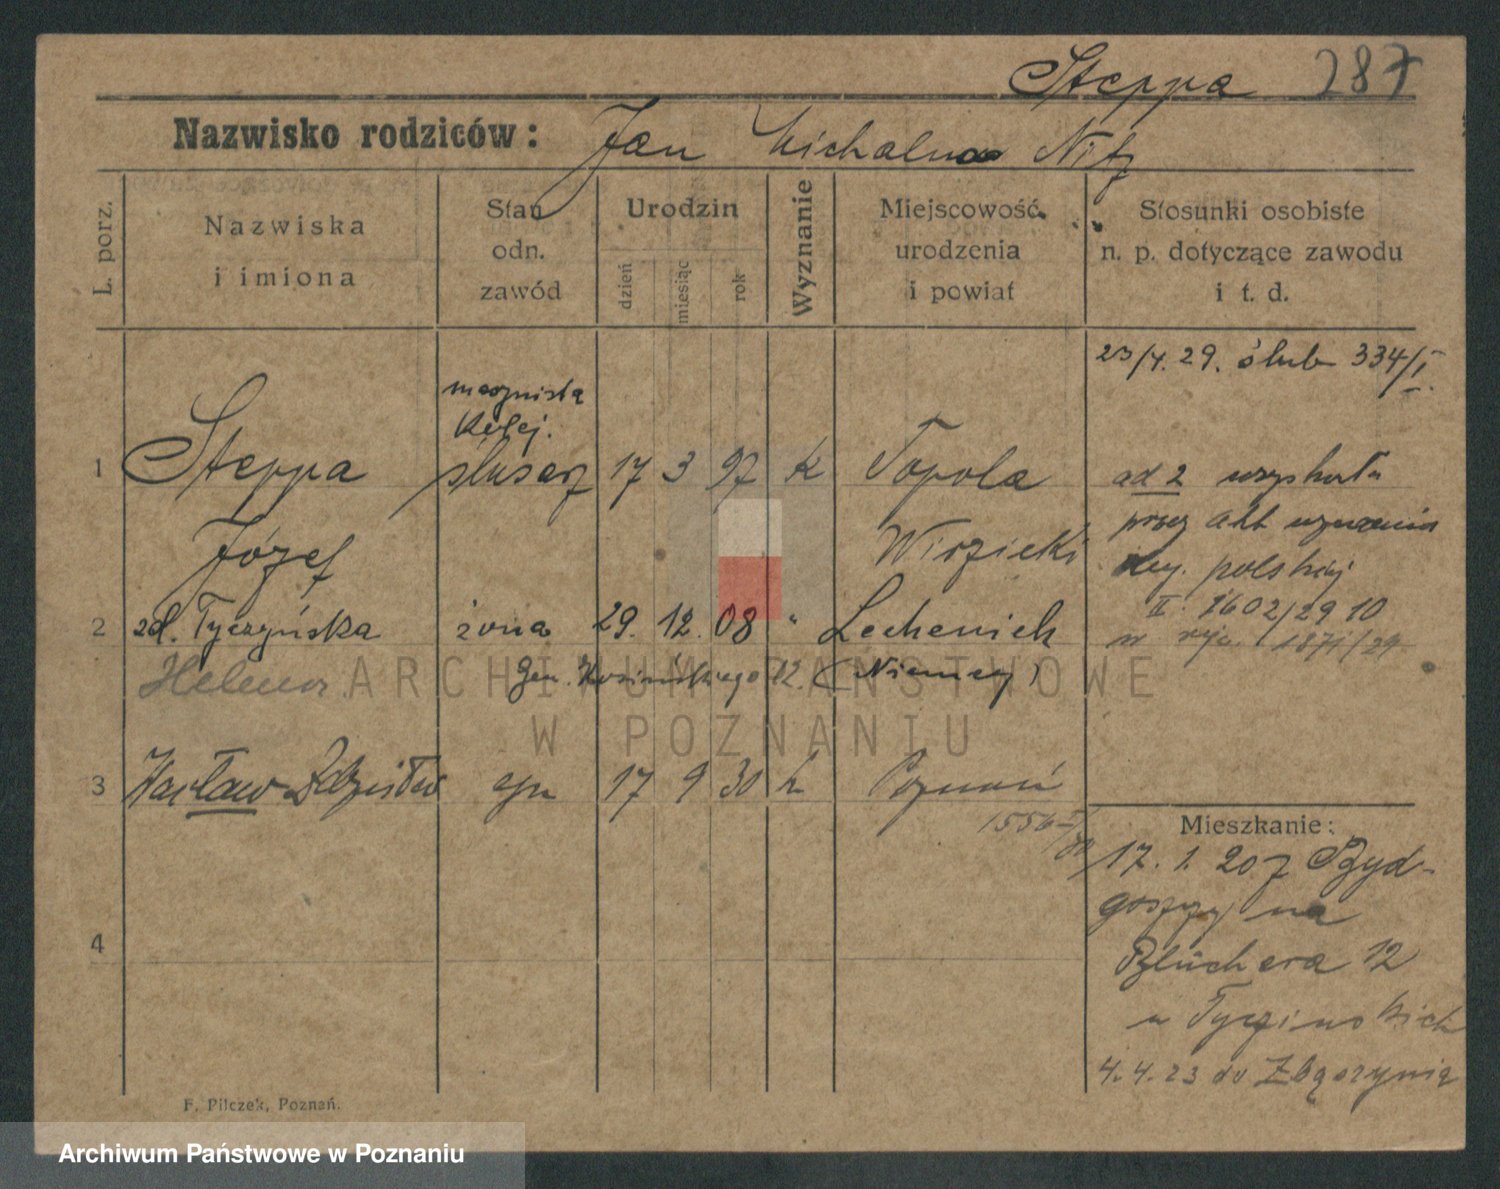 Steppa 287
Nazwisko rodziców: Jan Michalina Nitz
L. porz.
Nazwiska i imiona
Stan odn. zawód
Urodzin
dzień miesiąc rok
Wyznanie
Miejscowość urodzenia i powiat
Stosunki osobiste n. p. dotyczące zawodu i t. d.
23/4. 29. ślub 334/I.
maszynista
kolej.
1 Steppa ślusarz 17 3 97 k Topola
Józef Wirzicki
ad 2 uzyskała
przez akt uznania
polskiej
II. 1602/29 10
w 1871/29
2 zd. Tyczyńska żona 29. 12. 08 " Lechenich
Helena Gen. Kosińskiego 12. (Niemcy)
ARCHIWUM PAŃSTWOWE
W POZNANIU
3 Wacław Zdzisław syn 17 9 30 k Poznań
1556
4
Mieszkanie:
17. 1. 20 z Bydgoszczy na
Blüchera 12
u Tyczinskich
4. 4. 23 do Zbąszynia
F. Pilczek, Poznań.
Archiwum Państwowe w Poznaniu